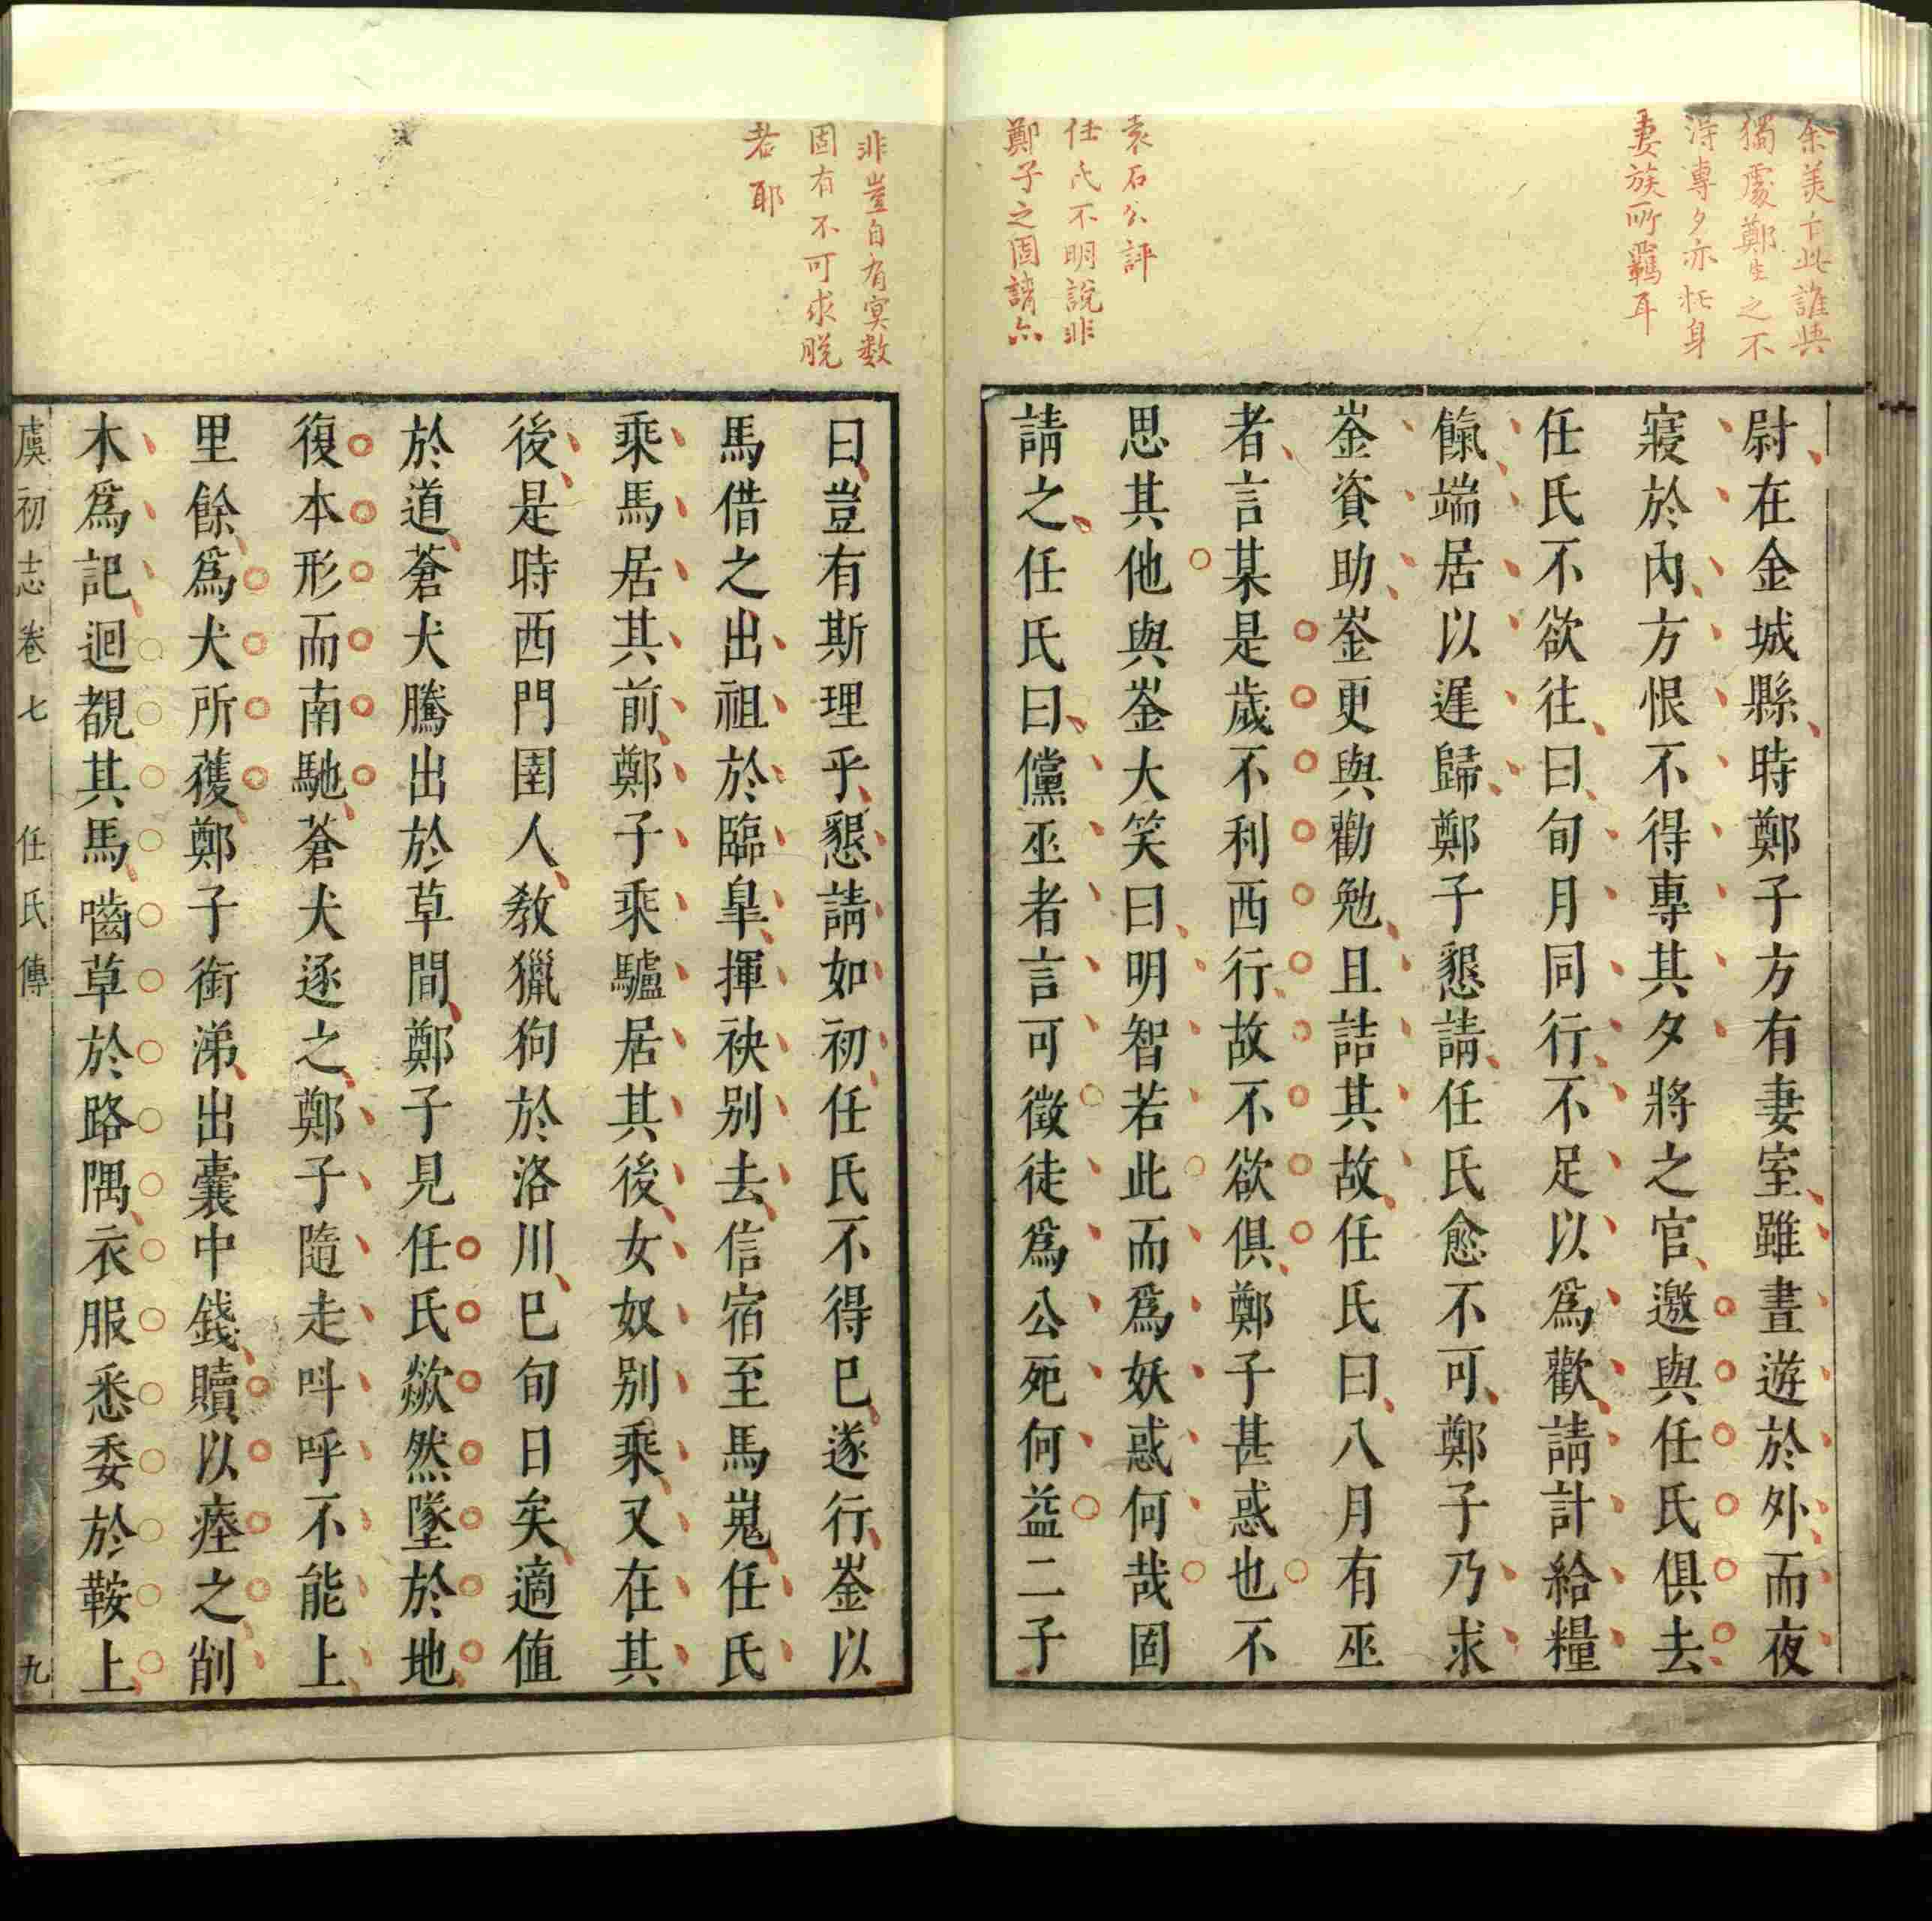 余美亡此誰與
獨處鄭生之不
得專夕亦恠身
妻族所羈耳
袁石公評
任氏不明說非
鄭子之固請亦
尉在金城縣時鄭子方有妻室雖晝遊於外而夜
寢於內方恨不得專其夕將之官邀與任氏俱去
任氏不欲往曰旬月同行不足以爲歡請計給糧
餼端居以遲歸鄭子懇請任氏愈不可鄭子乃求
崟資助崟更與勸勉且詰其故任氏曰八月有巫
者言某是歲不利西行故不欲俱鄭子甚惑也不
思其他與崟大笑曰明智若此而爲妖惑何哉固
請之任氏曰儻巫者言可徵徒爲公死何益二子
非豈自有冥数
固有不可求脱
者耶
曰豈有斯理乎懇請如初任氏不得已遂行崟以
馬借之出祖於臨臯揮袂别去信宿至馬嵬任氏
乘馬居其前鄭子乘驢居其後女奴别乘又在其
後是時西門圉人教獵狗於洛川巳旬日矣適值
於道蒼犬騰出於草間鄭子見任氏歘然墜於地
復本形而南馳蒼犬逐之鄭子隨走呌呼不能上
里餘爲犬所獲鄭子銜涕出囊中錢贖以瘞之削
木爲記迴覩其馬嚙草於路隅衣服悉委於鞍上
虞初志卷七 任氏傳 九